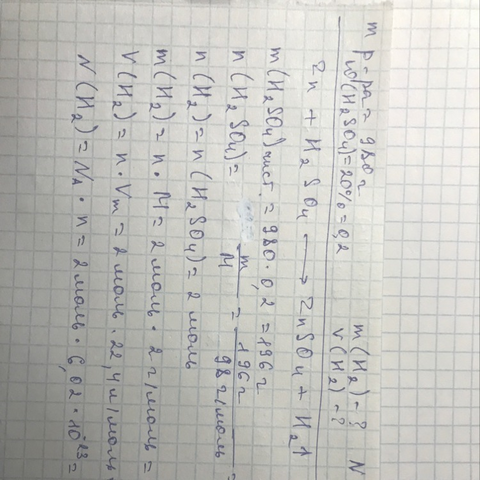 m р-ра = 980 г m(H₂) = ? N
ω(H₂SO₄) = 20% = 0,2 V(H₂) = ?
Zn + H₂SO₄ ⟶ ZnSO₄ + H₂↑
m(H₂SO₄) чист. = 980 · 0,2 = 196 г
n(H₂SO₄) = m/M = 196 г/98 г/моль =
n(H₂) = n(H₂SO₄) = 2 моль
m(H₂) = n · M = 2 моль · 2 г/моль =
V(H₂) = n · Vm = 2 моль · 22,4 л/моль
N(H₂) = NA · n = 2 моль · 6,02 · 10²³ =